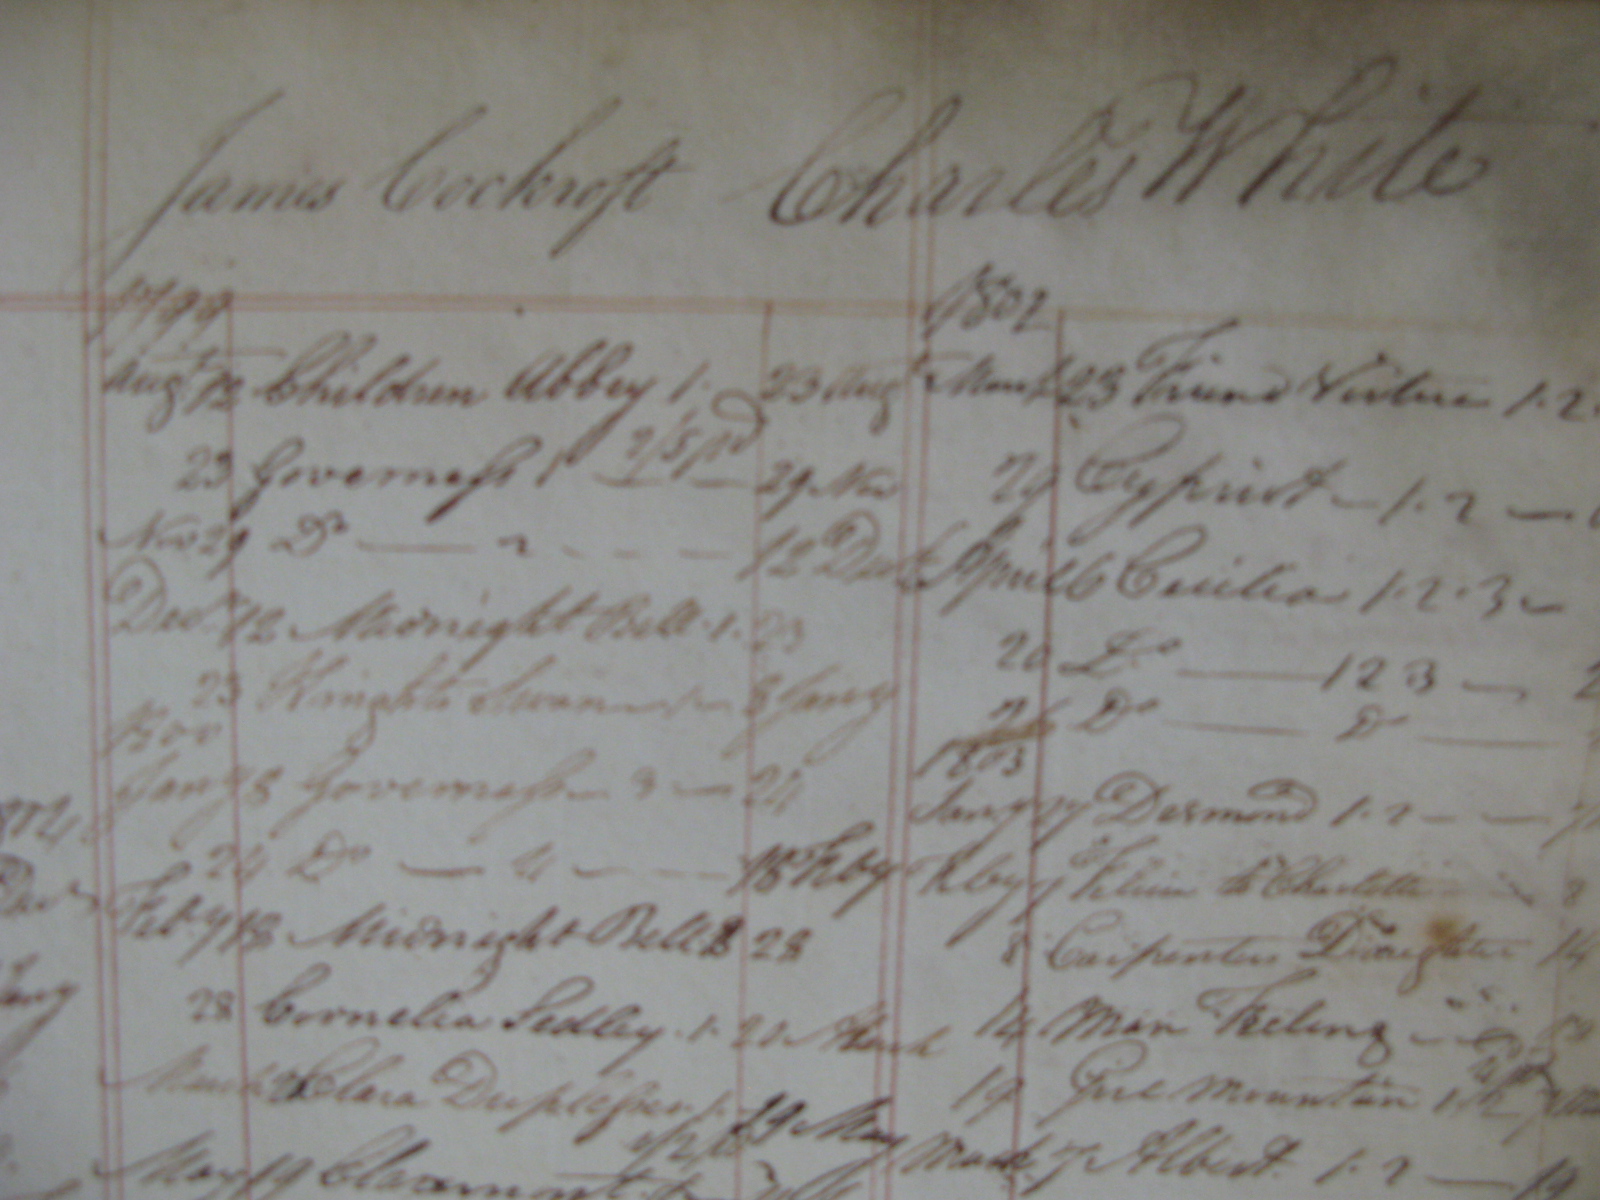 James Cockroft
1799
Augt 12 Children Abbey 1. 23 Augt
2/5 pd
23 Governess 1 29 Nov
Nov 29 Do — 2 - - - 12 Decr
Decr 12 Midnight Bell . 1 . 23
23 Knights Swan 1 — 8 Jany
1800
Jany 8 Governess — 3 — 24
24 Do — 4 — 18 Feby
Feby 18 Midnight Bell 28
28 Cornelia Sedley . 1 . 21 March
March Clara Duplessis 1. 19 May
May 19 Claremont
Charles White
1802
March 23 Friend Virtue 1.2.
29 Cypriot — 1.2 —
April 6 Cecilia 1.2.3 —
20 Do — 1 2 3 —
26 Do — Do —
1803
Jany 17 Desmond 1.2 — —
Feby 7 to Charlotte 8
8 Carpenters Daughter 14
14 Man Feeling —
19 Mountain
March 7 Albert. 1.2 — 19